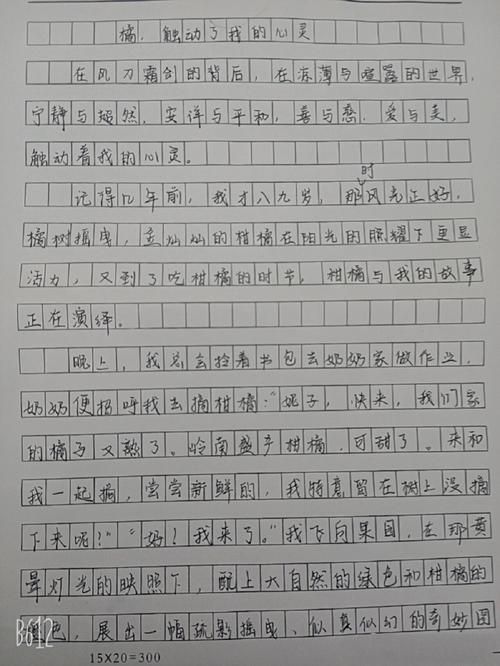 橘，触动了我的心灵
在风刀霜剑的背后，在凉薄与喧嚣的世界，
宁静与超然，安详与平和，喜与悲，爱与美，
触动着我的心灵。
记得几年前，我才八九岁，那时风光正好，
橘树摇曳，金灿灿的柑橘在阳光的照耀下更显
活力，又到了吃柑橘的时节，柑橘与我的故事
正在演绎。
晚上，我总会拎着书包去奶奶家做作业，
奶奶便招呼我去摘柑橘："妮子，快来，我们家
的橘子又熟了。岭南盛产柑橘，可甜了。来和
我一起摘，尝尝新鲜的，我特意留在树上没摘
下来呢！""好！我来了。"我飞向果园，在那黄
晕灯光的映照下，配上大自然的绿色和柑橘的
色，展出一幅疏影摇曳、似真似幻的奇妙图
15×20=300
B612